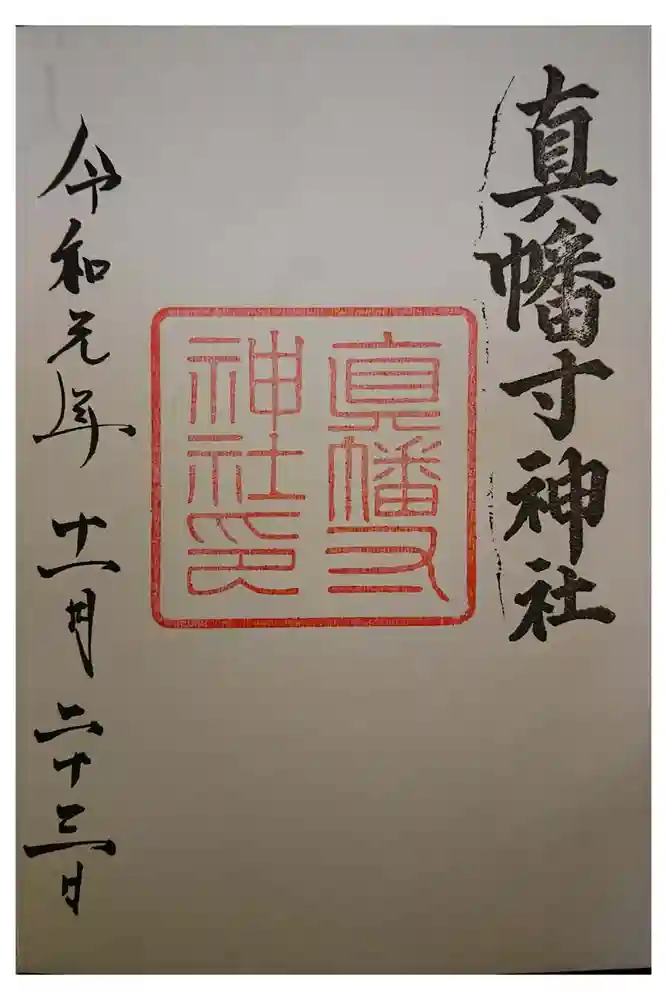 真幡寸神社
真幡寸
神社印
令和元年 十一月 二十三日